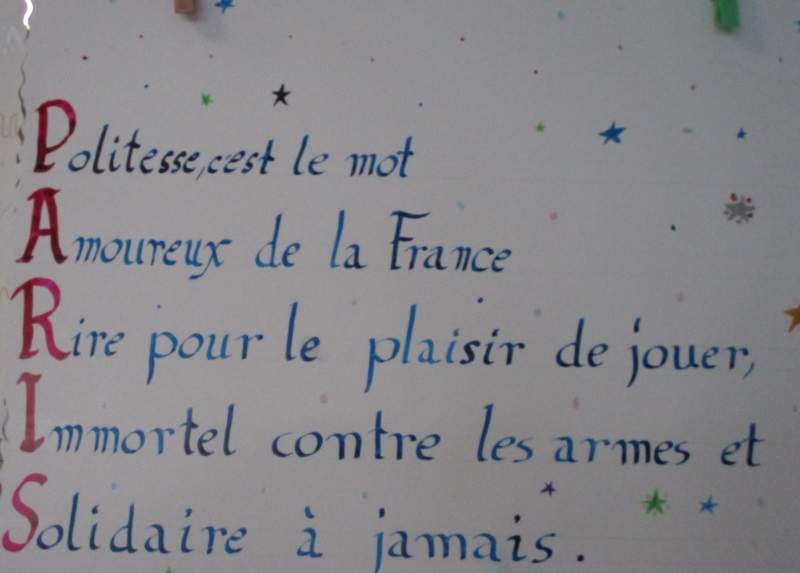 Politesse,cest le mot
Amoureux de la France
Rire pour le plaisir de jouer,
Immortel contre les armes et
Solidaire à jamais.